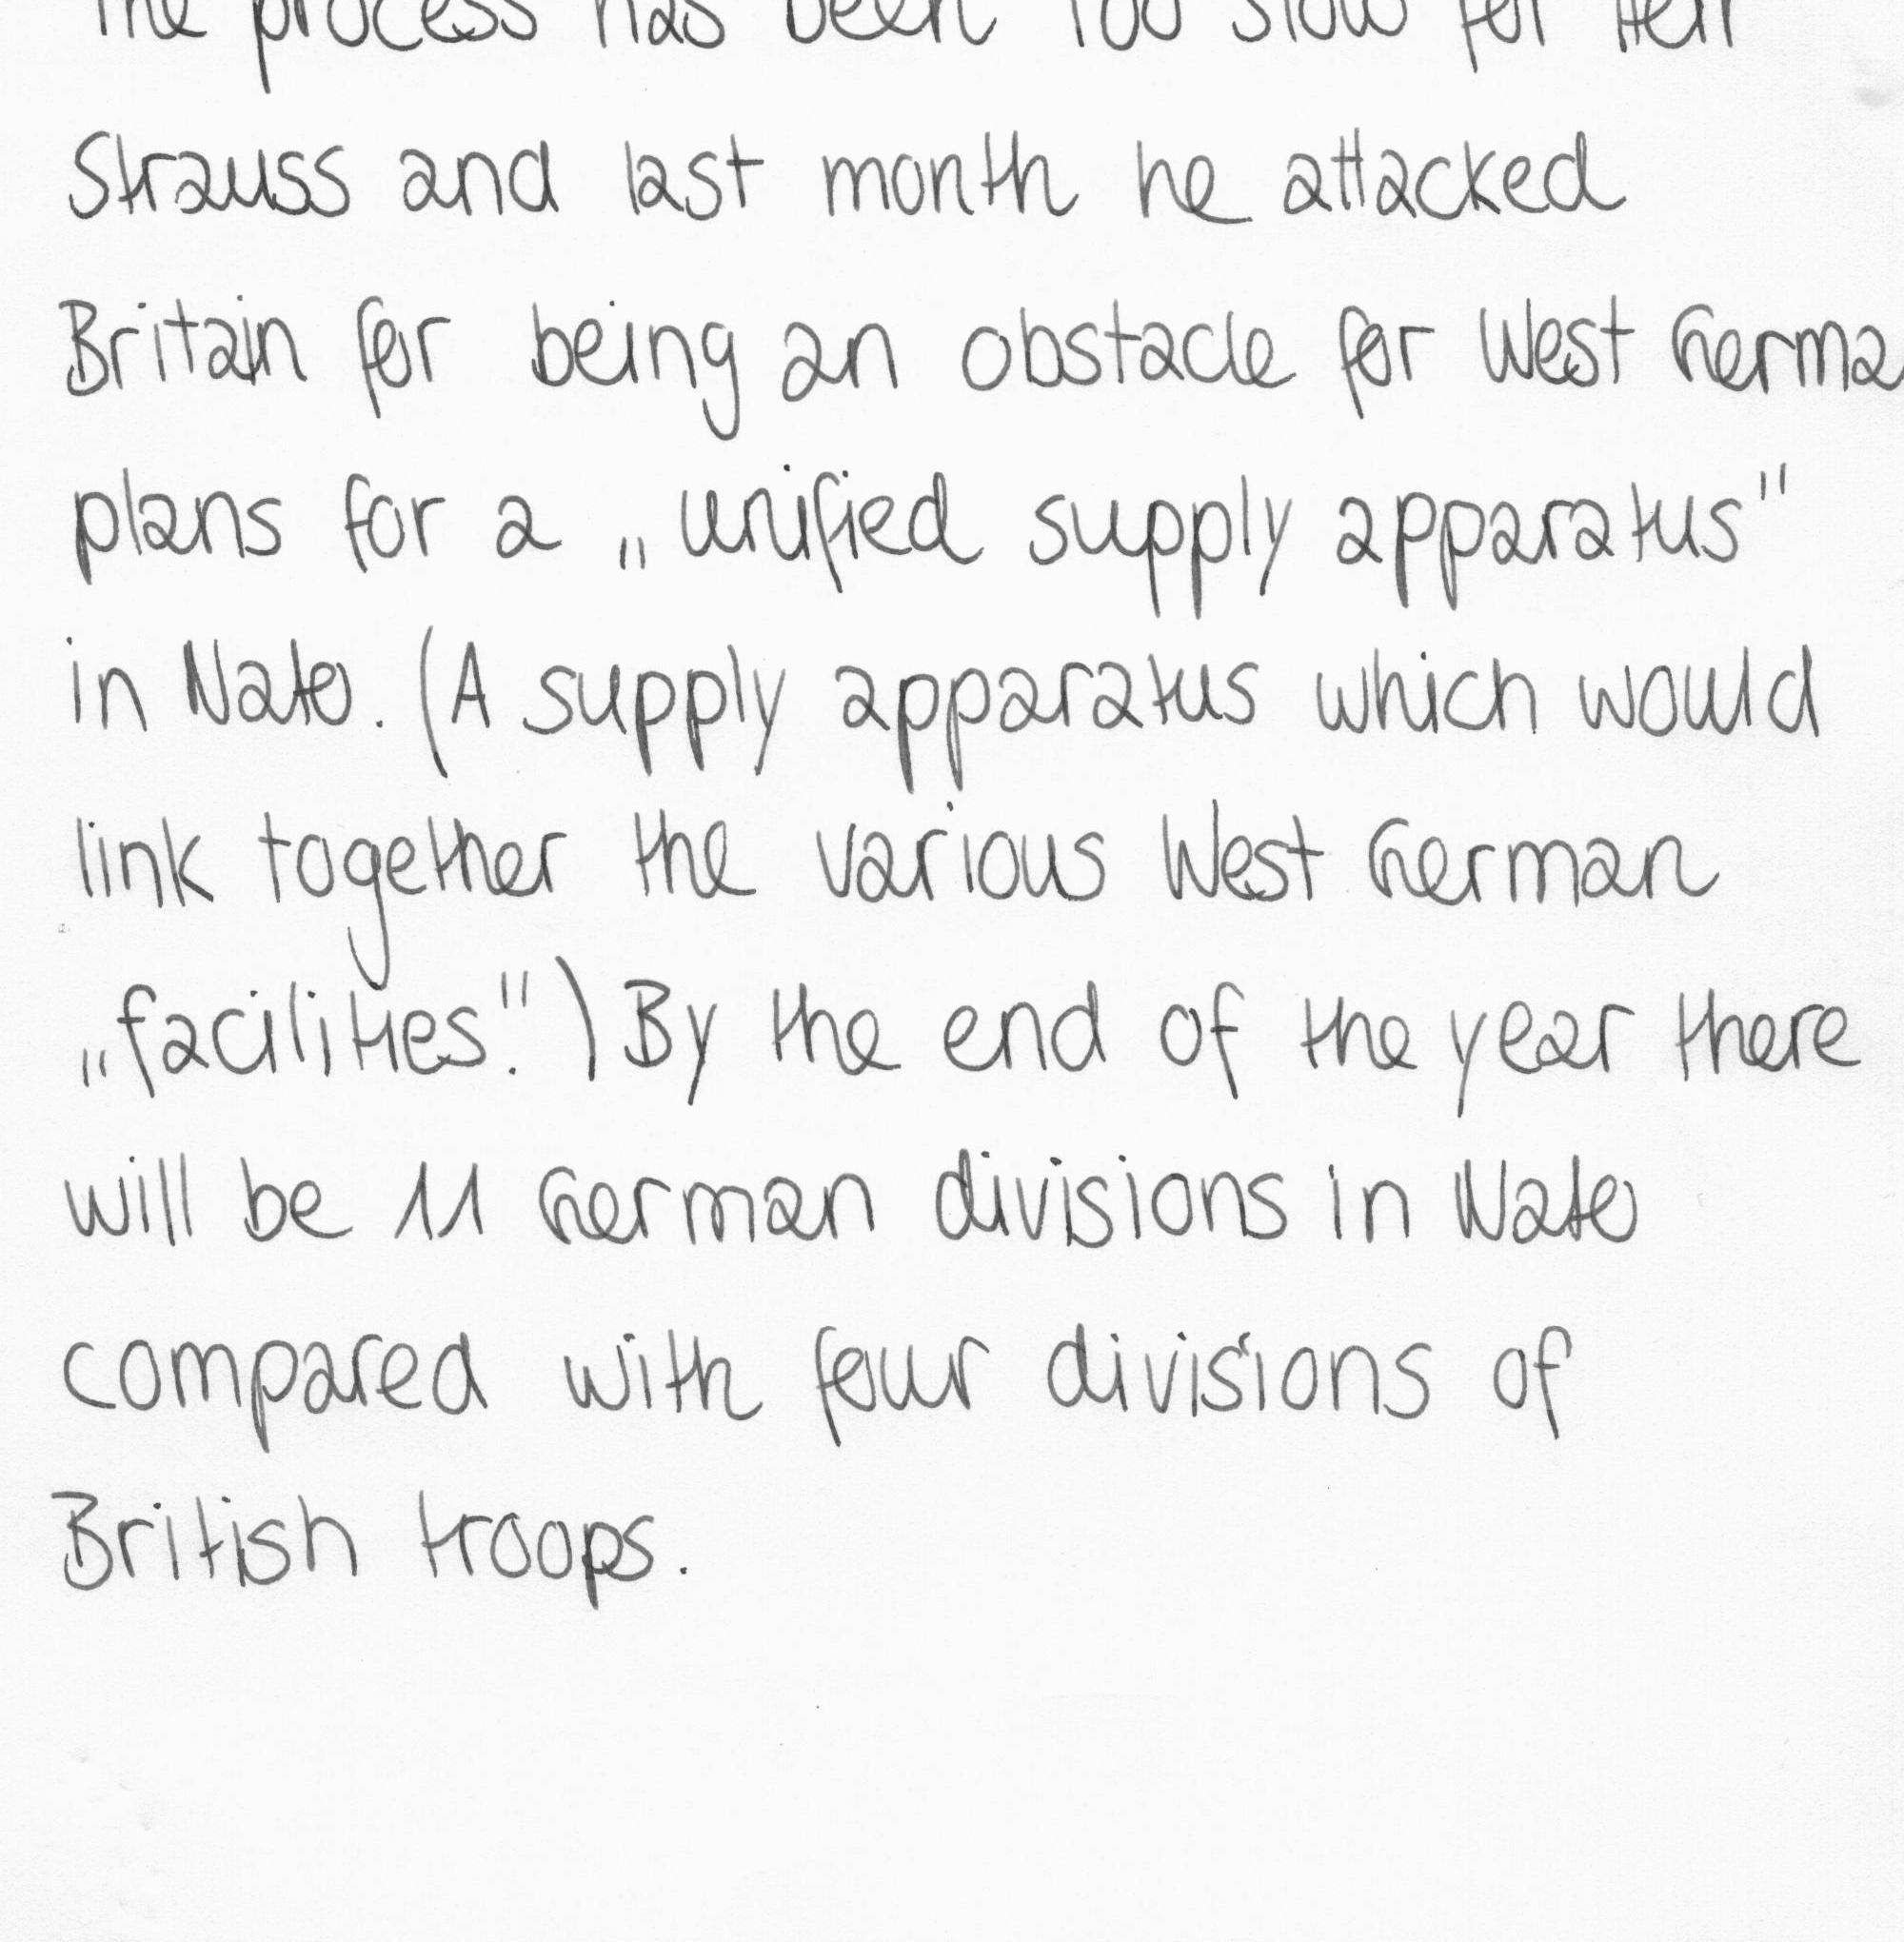 The process has been too slow for Herr
Strauss and last month he attacked
Britain for being an obstacle for West Germa
plans for a „unified supply apparatus"
in Nato. (A supply apparatus which would
link together the various West German
„facilities.") By the end of the year there
will be 11 German divisions in Nato
compared with four divisions of
British troops.